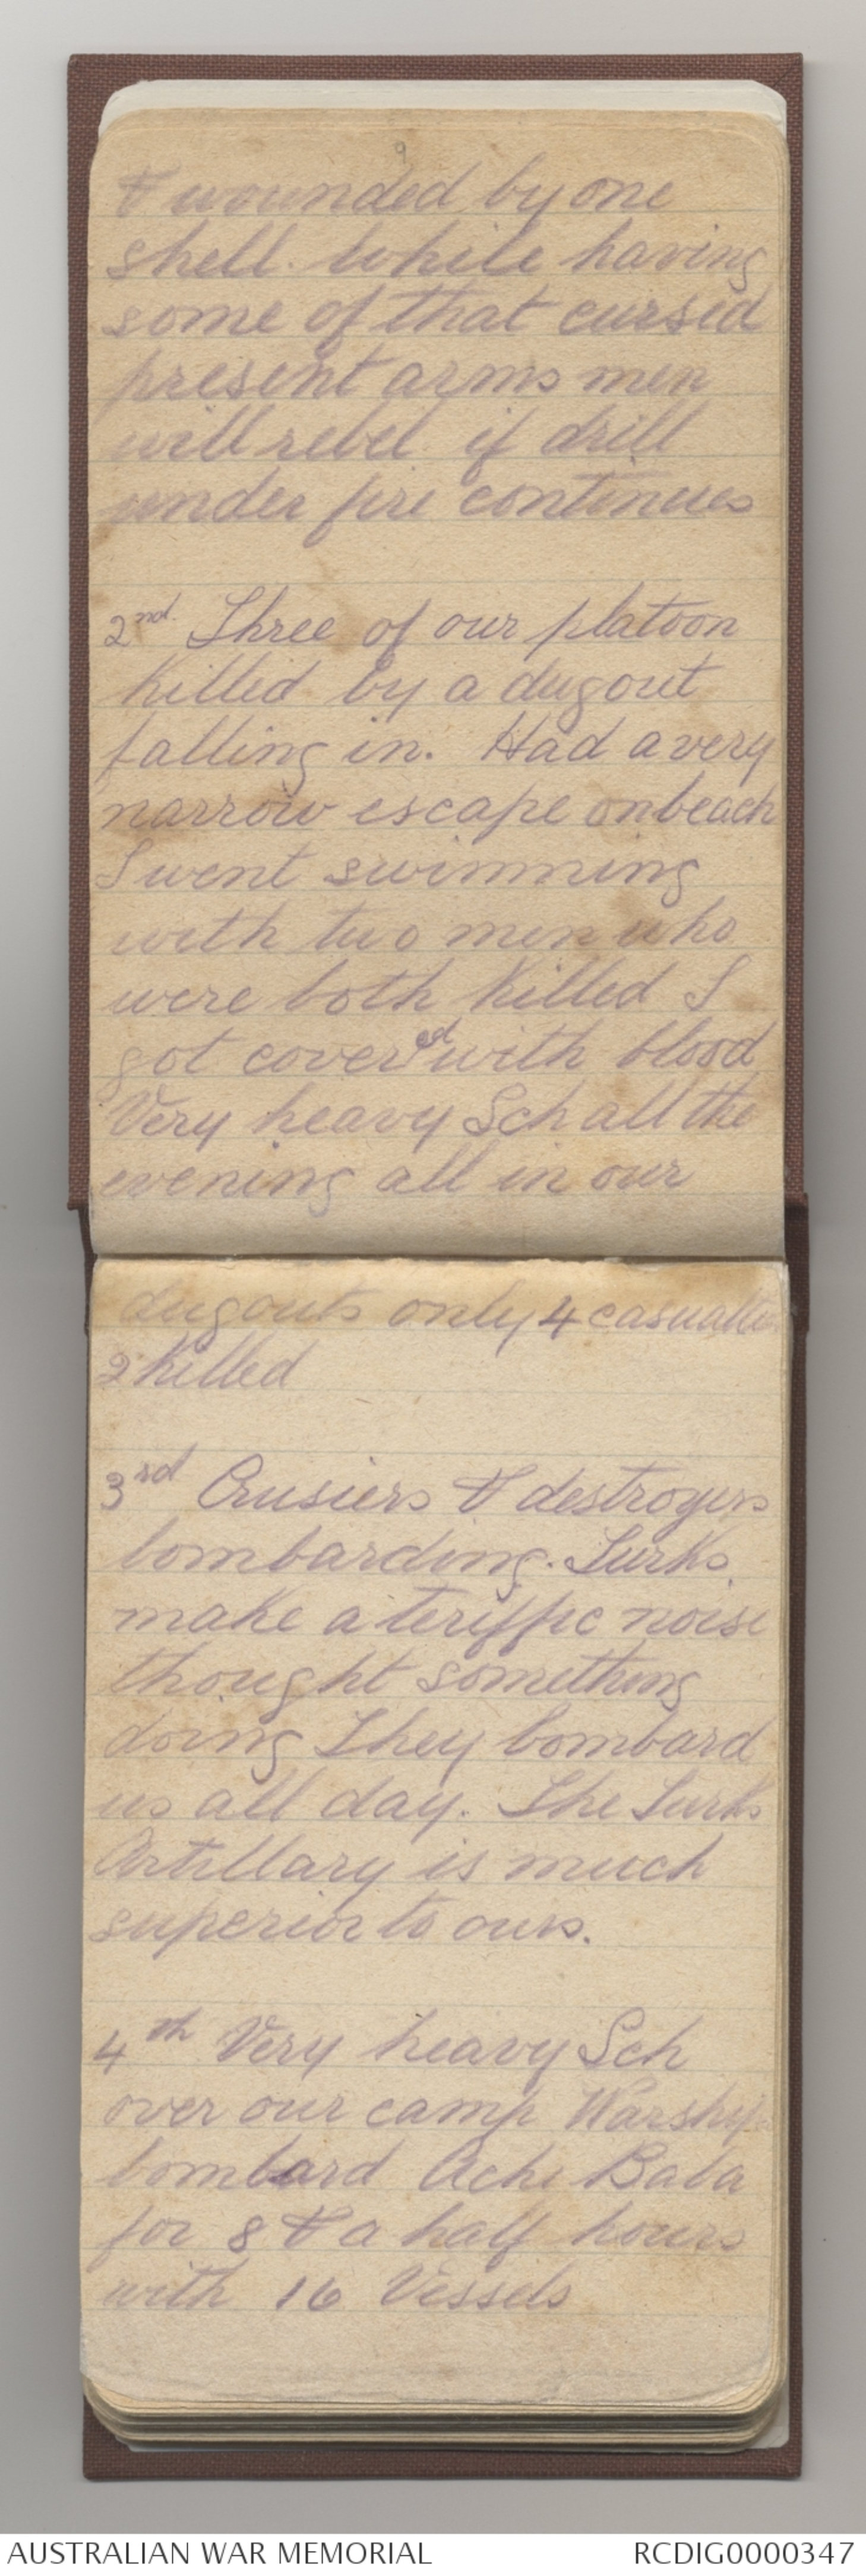 9
& wounded by one
shell. While having
some of that cursed
present arms men
will rebel if drill
under fire continues
2nd. Three of our platoon
killed by a dugout
falling in. Had a very
narrow escape on beach
I went swimming
with two men who
were both killed I
got covered with blood
Very heavy Sch all the
evening all in our
dugouts only 4 casualties
2 killed
3rd Crusiers & destroyers
bombarding. Turks
make a teriffic noise
thought something
doing They bombard
us all day. The Turks
Artillary is much
superior to ours.
4th Very heavy Sch
over our camp Warships
bombard Achi Baba
for 8 & a half hours
with 16 Vessels
AUSTRALIAN WAR MEMORIAL
RCDIG0000347